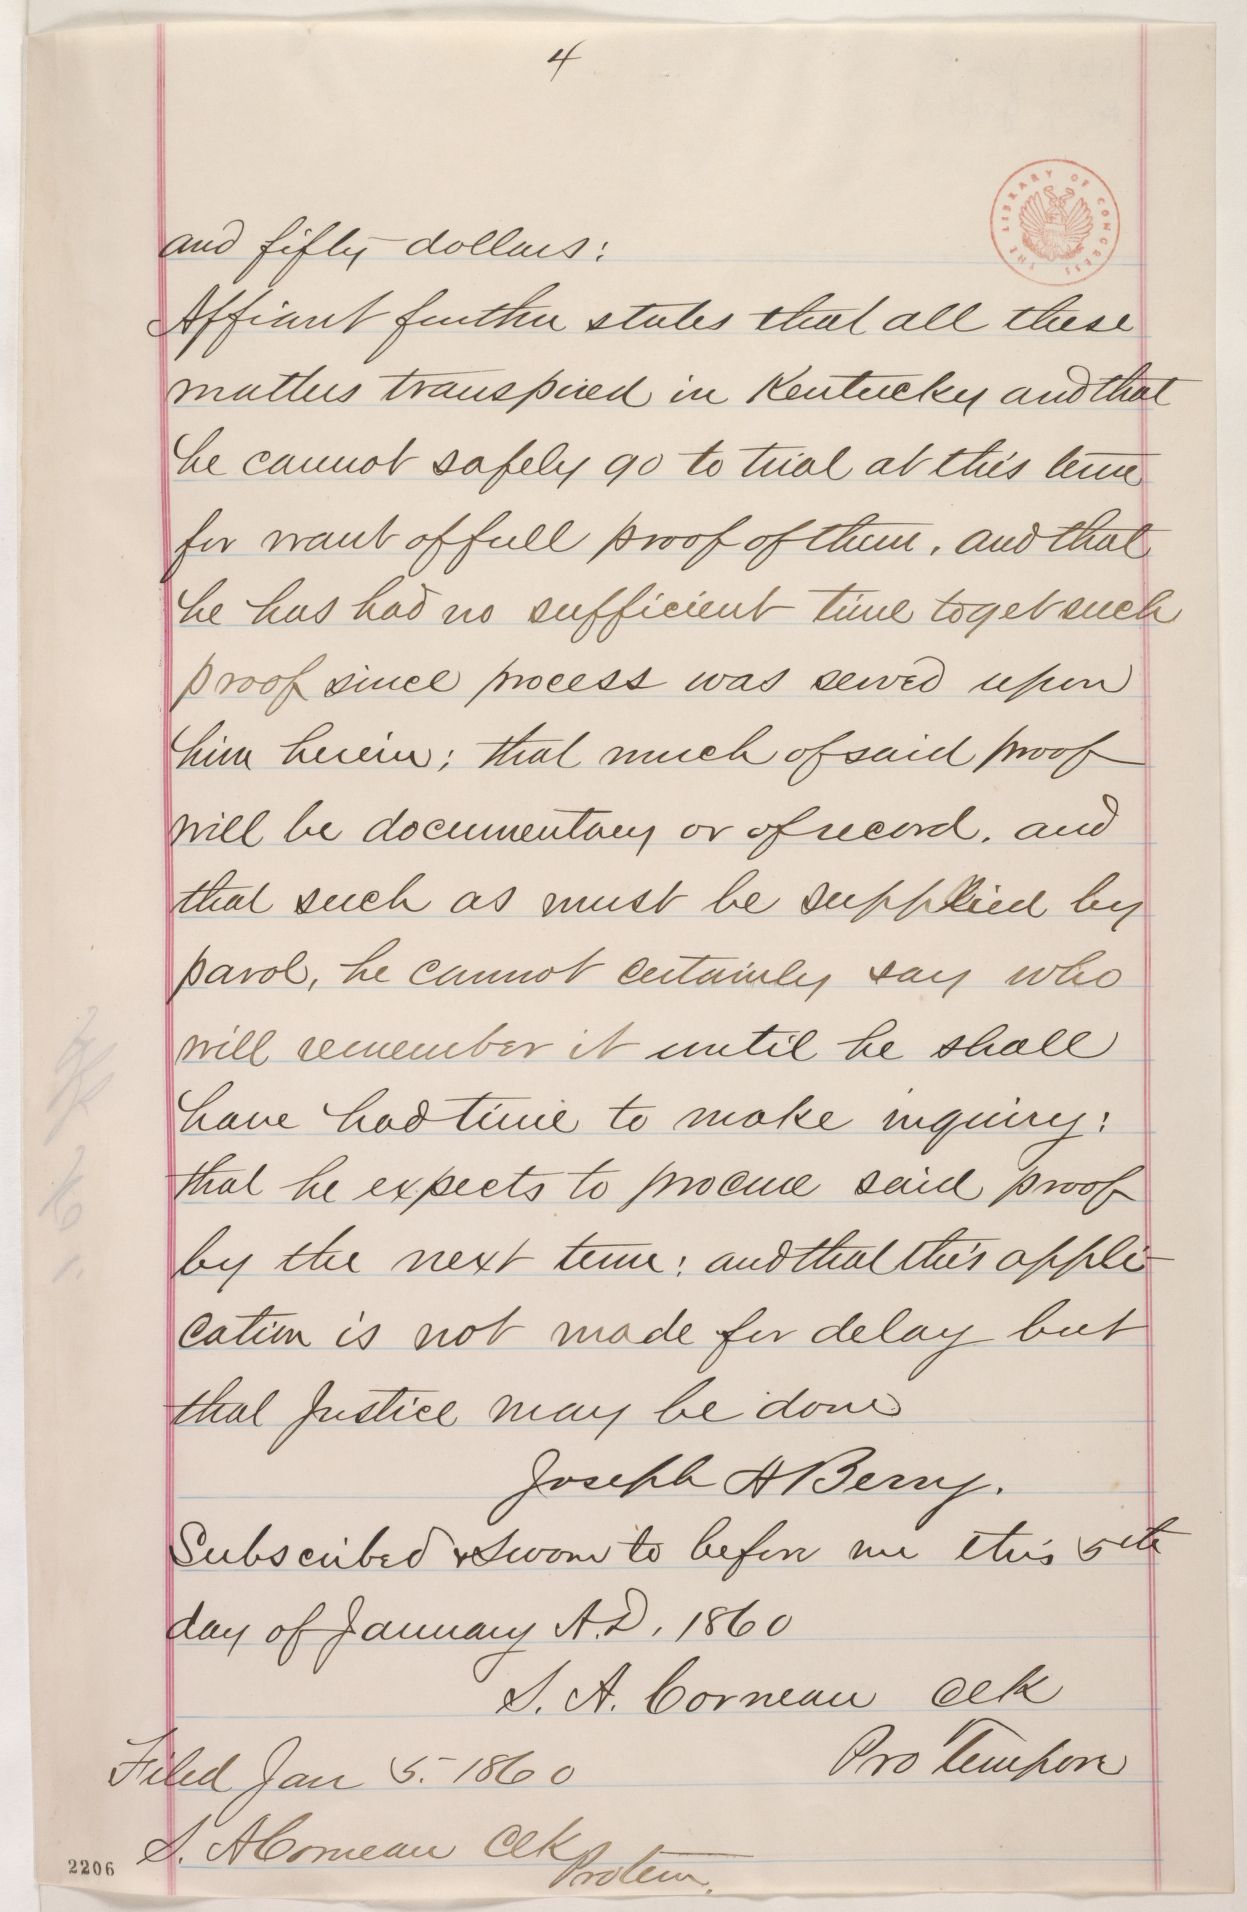 4
THE LIBRARY OF CONGRESS
and fifty dollars:
Affiant further states that all these
matters transpired in Kentucky and that
he cannot safely go to trial at this term
for want of full proof of them, and that
he has had no sufficient time to get such
proof since process was served upon
him herein; that much of said proof
will be documentary or of record, and
that such as must be supplied by
parol, he cannot certainly say who
will remember it until he shall
have had time to make inquiry:
that he expects to procure said proof
by the next term: and that this appli-
cation is not made for delay but
that Justice may be done
Joseph H Berry.
Subscribed & Sworn to before me this 5th
day of January A.D. 1860
S. A. Corneau Clk
Pro Tempore
Filed Jan 5. 1860
S. A Corneau Clk
Protem.
2206